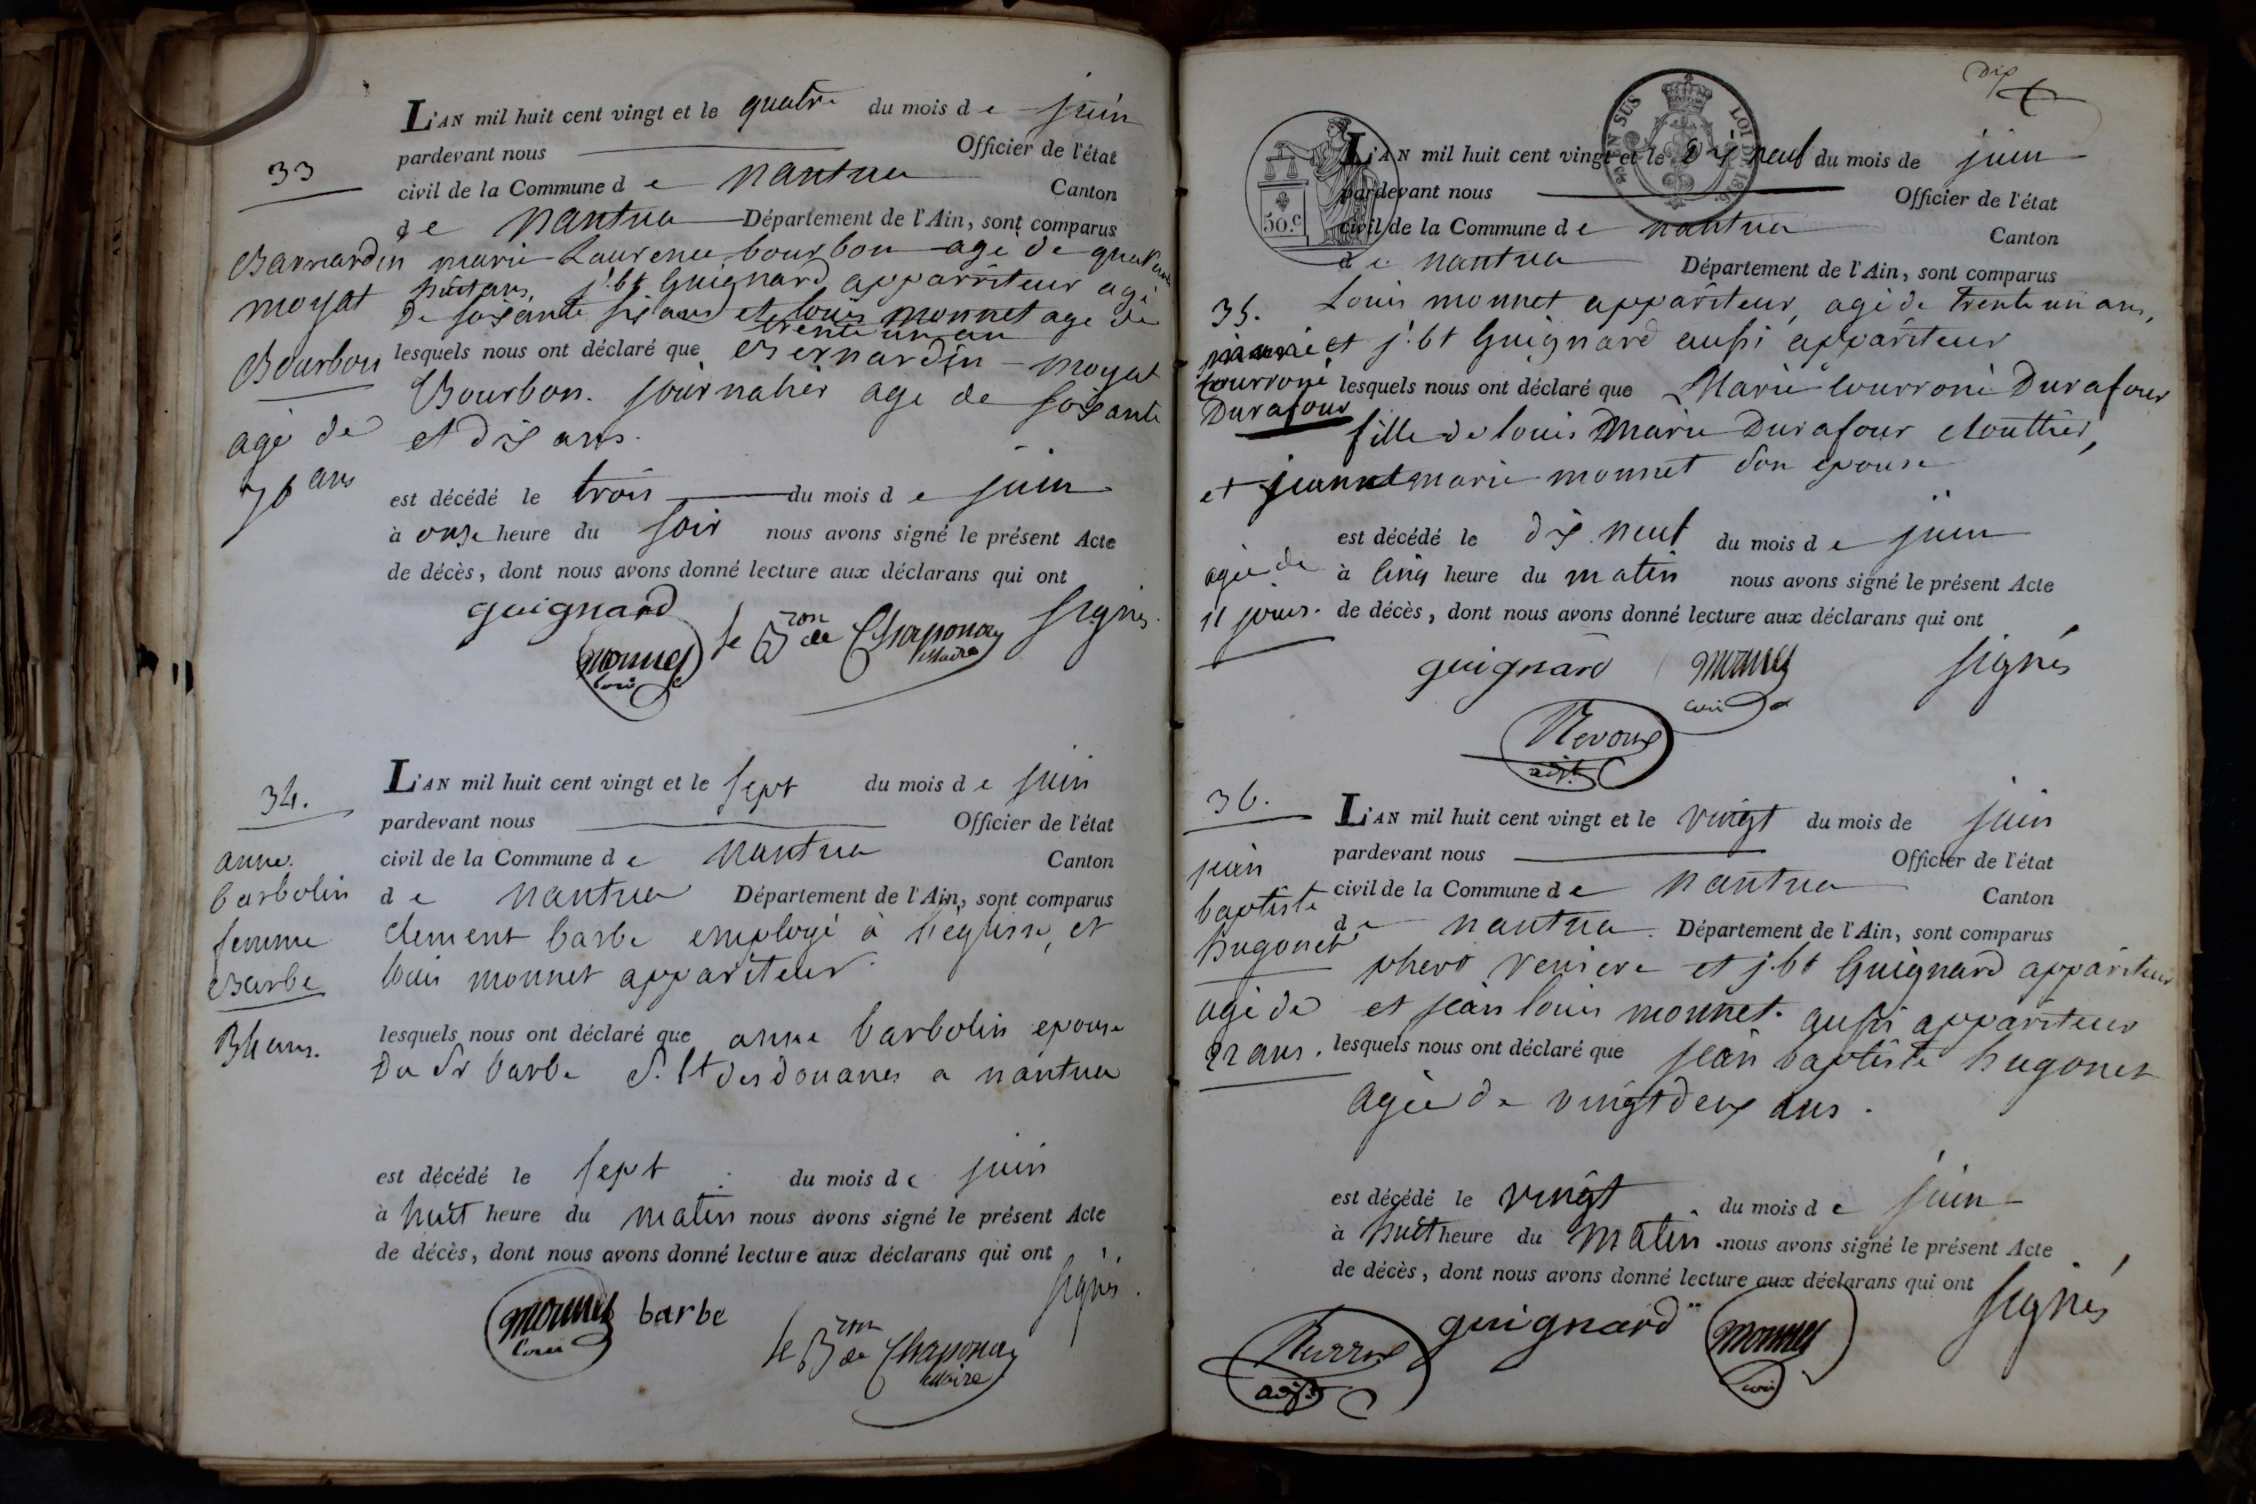 33
Barnardin
moyat
Bourbon
agé de
70 ans
L'AN mil huit cent vingt et le quatre du mois de juin
pardevant nous Officier de l'état
civil de la Commune de nantua Canton
de nantua Département de l'Ain, sont comparus
marie Laurence bourbon agé de quarante
huit ans, j.bt Guignard apparriteur agé
de soixante six ans et louis monnet age de
trente un an
lesquels nous ont déclaré que Bernardin moyat
Bourbon. journalier age de soixante
et dix ans.
est décédé le trois du mois de juin
à onze heure du soir nous avons signé le présent Acte
de décès, dont nous avons donné lecture aux déclarans qui ont
signés.
guignard
monnet
louis
le Bron de Chaponay
Maire
34.
anne
barbolin
femme
Barbe
L'AN mil huit cent vingt et le sept du mois de juin
pardevant nous Officier de l'état
civil de la Commune de nantua Canton
de nantua Département de l'Ain, sont comparus
clement barbe employé à l'eglisse, et
louis monnet appariteur.
lesquels nous ont déclaré que anne barbolin epouse
Du Sr barbe S. Lt des douanes a nantua
est décédé le sept du mois de juin
à huit heure du matin nous avons signé le présent Acte
de décès, dont nous avons donné lecture aux déclarans qui ont
signés.
monnet
louis
barbe
le Bron de Chaponay
Maire
dix
35.
marie
courroné
Durafour
agée de
11 jours.
50.c
L'AN mil huit cent vingt et le dix neuf du mois de juin
pardevant nous Officier de l'état
civil de la Commune de nantua Canton
de nantua Département de l'Ain, sont comparus
Louis monnet appariteur, agé de trente un ans,
et j.bt Guignard aussi appariteur
lesquels nous ont déclaré que Marie courroné Durafour
fille de louis Marie Durafour clouttier,
et jeanne marie monnet son epouse
est décédé le dix neuf du mois de juin
à cinq heure du matin nous avons signé le présent Acte
de décès, dont nous avons donné lecture aux déclarans qui ont
signés
guignard
monnet
louis
adjt
36.
jean
baptiste
hugonet
agé de
22 ans.
L'AN mil huit cent vingt et le vingt du mois de juin
pardevant nous Officier de l'état
civil de la Commune de nantua Canton
de nantua. Département de l'Ain, sont comparus
et j.bt Guignard appariteur
et jean louis monnet. aussi appariteur
lesquels nous ont déclaré que jean baptiste hugonet
agée de vingt deux ans.
est décédé le vingt du mois de juin
à huit heure du matin nous avons signé le présent Acte
de décès, dont nous avons donné lecture aux déclarans qui ont
signés
guignard
monnet
louis
adjt